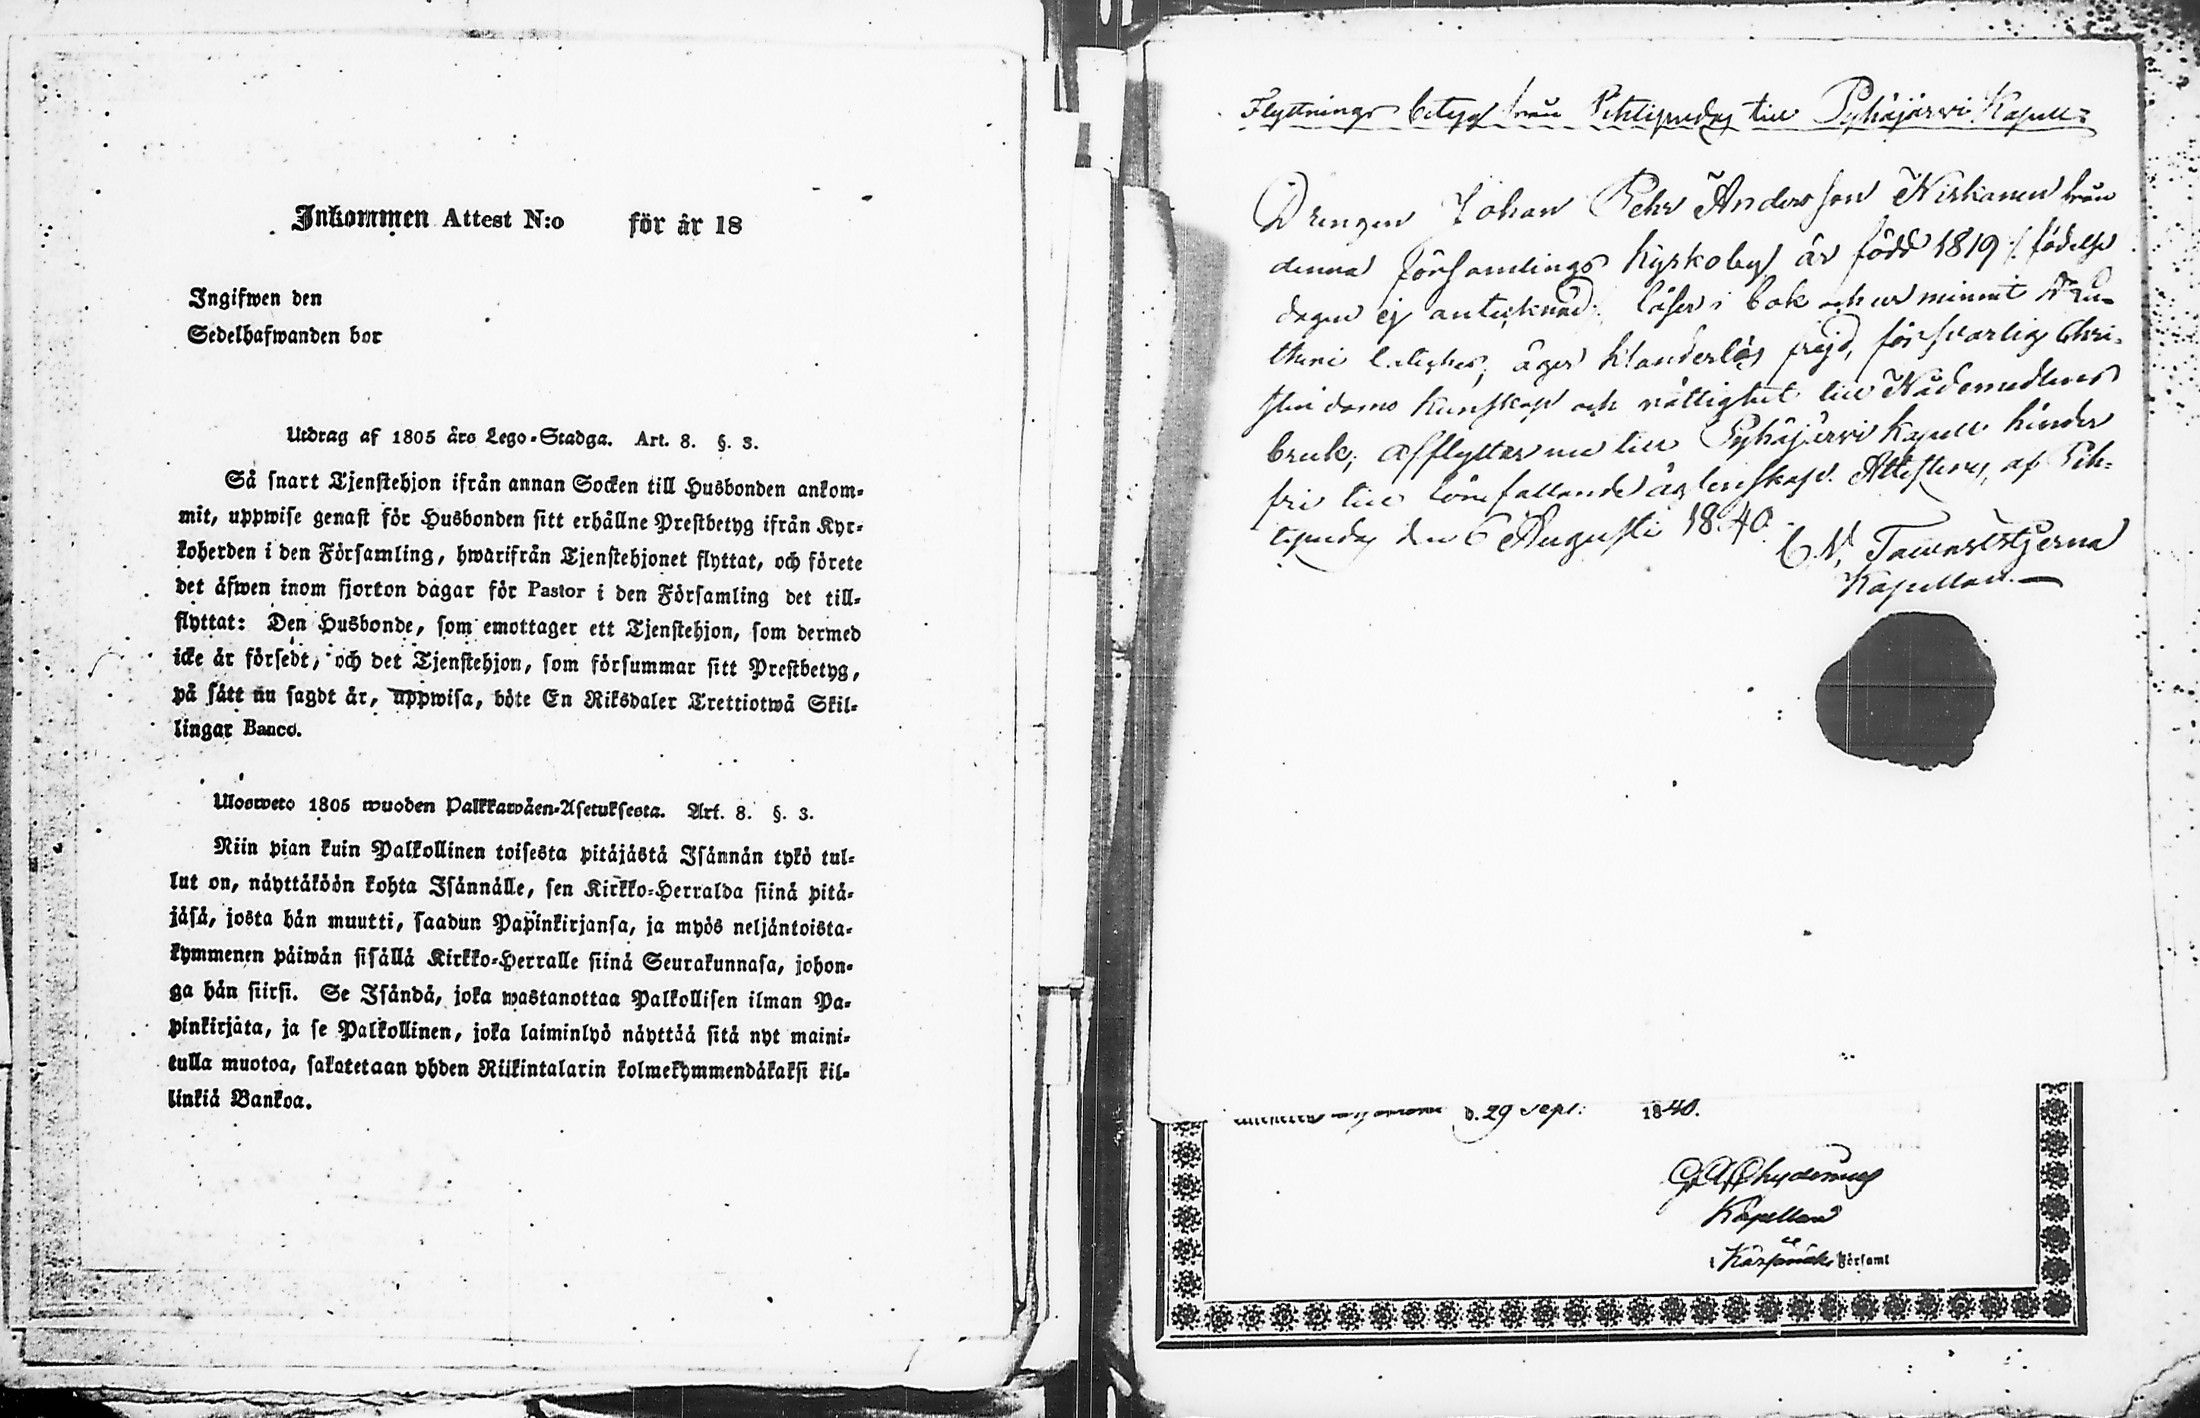 Inkommen Attest N:o för år 18
Ingifwen den
Sedelhafwanden bor
Utdrag af 1805 års Lego-Stadga. Art. 8. §. 3.
Så snart Tjenstehjon ifrån annan Socken till Husbonden ankom-
mit, uppwise genast för Husbonden sitt erhållne Prestbetyg ifrån Kyr-
koherden i den Församling, hwarifrån Tjenstehjonet flyttat, och förete
det äfwen inom fjorton dagar för Pastor i den Församling det till-
flyttat: Den Husbonde, som emottager ett Tjenstehjon, som dermed
icke är försedt, och det Tjenstehjon, som försummar sitt Prestbetyg,
på sätt nu sagdt är, uppwisa, böte En Riksdaler Trettiotwå Skil-
lingar Banco.
Ulosweto 1805 wuoden Palkkawäen-Asetuksesta. Art. 8. §. 3.
Niin pian kuin Palkollinen toisesta pitäjästä Isännän tykö tul-
lut on, näyttäköön kohta Isännälle, sen Kirkko-Herralda siinä pitä-
jäsä, josta hän muutti, saadun Papinkirjansa, ja myös neljäntoista-
kymmenen päiwän sisällä Kirkko-Herralle siinä Seurakunnasa, johon-
ga hän siirsi. Se Isändä, joka wastanottaa Palkollisen ilman Pa-
pinkirjata, ja se Palkollinen, joka laiminlyö näyttää sitä nyt maini-
tulla muotoa, sakotetaan yhden Riikintalarin kolmekymmendäkaksi kil-
linkiä Bankoa.
Flyttnings betyg från Pihtipudas till Pyhäjärvi Kapell
Drengen Johan Pehr Andersson Niskanen från
denna församlings Kyrkoby är född 1819 /: födelse
dagen ej antecknad: läser i bok och ur minnet
äger klanderlös frejd, försvarlig Chri-
stendoms kunskap och rättighet till Nådemedlens
bruk; afflyttar nu till Pyhäjärvi Kapell hinder
fri till äktenskap. Attesteras af Pih-
tipudas den 6 Augusti 1840.
Tawaststjerna
Kapellan.
d. 29 Sept. 1840.
Chydenius
Kapellan
i Kärsämäki Församl